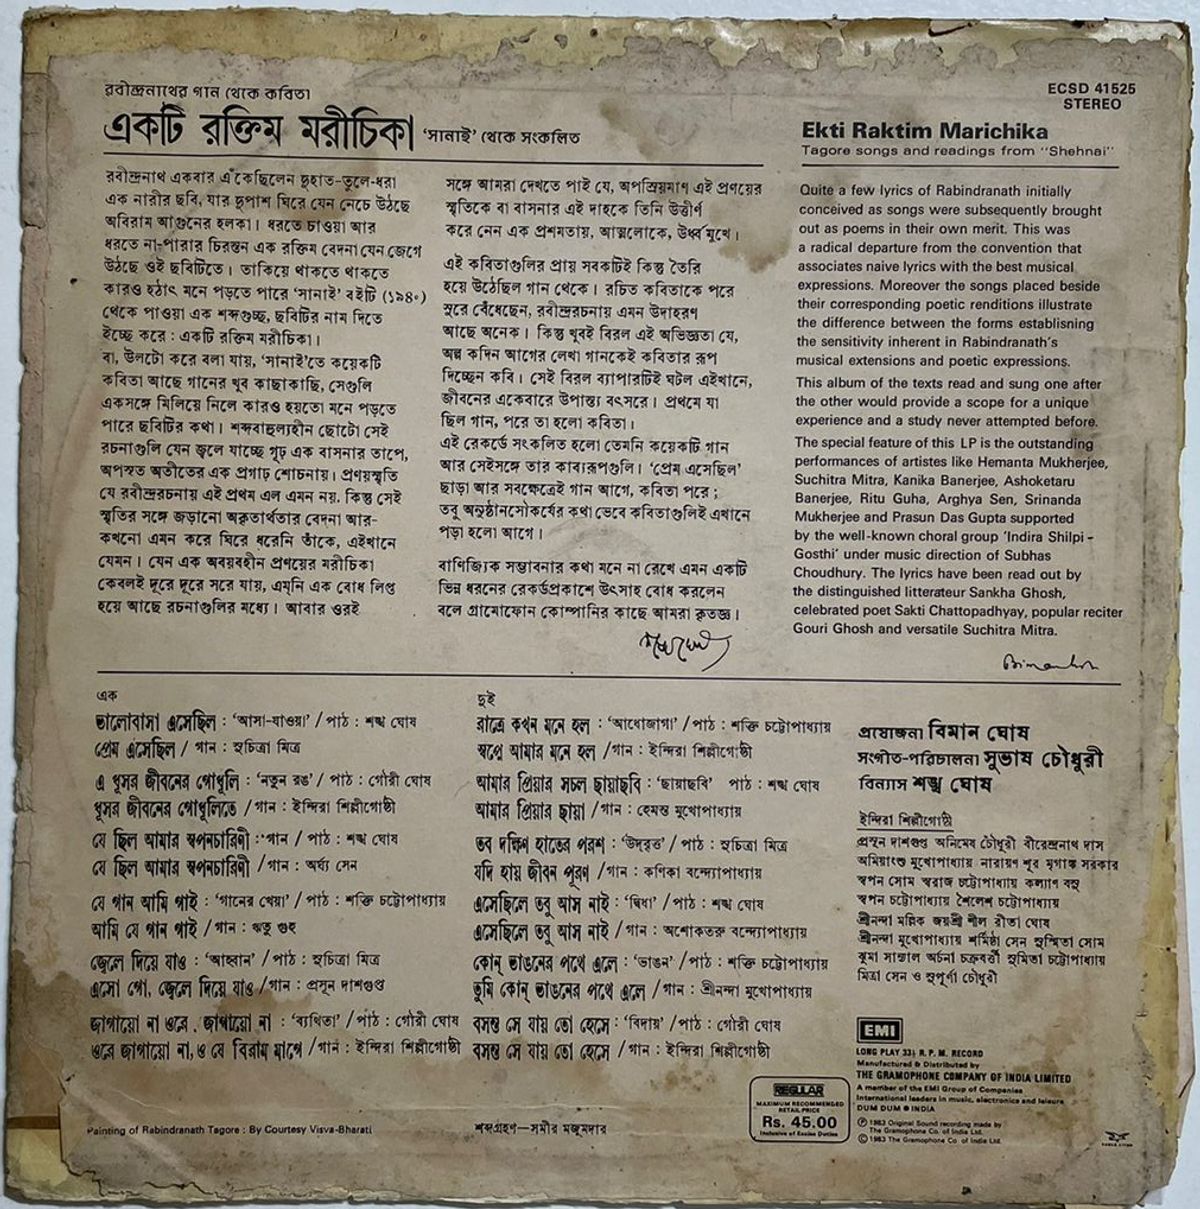 রবীন্দ্রনাথের গান থেকে কবিতা
একটি রক্তিম মরীচিকা 'সানাই' থেকে সংকলিত
রবীন্দ্রনাথ একবার এঁকেছিলেন দুহাত-তুলে-ধরা
এক নারীর ছবি, যার দুপাশ ঘিরে যেন নেচে উঠছে
অবিরাম আগুনের হলকা। ধরতে চাওয়া আর
ধরতে না-পারার চিরন্তন এক রক্তিম বেদনা যেন জেগে
উঠছে ওই ছবিটিতে। তাকিয়ে থাকতে থাকতে
কারও হঠাৎ মনে পড়তে পারে 'সানাই' বইটি (১৯৪০)
থেকে পাওয়া এক শব্দগুচ্ছ, ছবিটির নাম দিতে
ইচ্ছে করে : একটি রক্তিম মরীচিকা।
বা, উলটো করে বলা যায়, 'সানাই'তে কয়েকটি
কবিতা আছে গানের খুব কাছাকাছি, সেগুলি
একসঙ্গে মিলিয়ে নিলে কারও হয়তো মনে পড়তে
পারে ছবিটির কথা। শব্দবাহুল্যহীন ছোটো সেই
রচনাগুলি যেন জ্বলে যাচ্ছে গূঢ় এক বাসনার তাপে,
অপসৃত অতীতের এক প্রগাঢ় শোচনায়। প্রণয়স্মৃতি
যে রবীন্দ্ররচনায় এই প্রথম এল এমন নয়, কিন্তু সেই
স্মৃতির সঙ্গে জড়ানো অকৃতার্থতার বেদনা আর-
কখনো এমন করে ঘিরে ধরেনি তাঁকে, এইখানে
যেমন। যেন এক অবয়বহীন প্রণয়ের মরীচিকা
কেবলই দূরে দূরে সরে যায়, এমনি এক বোধ লিপ্ত
হয়ে আছে রচনাগুলির মধ্যে। আবার ওরই
সঙ্গে আমরা দেখতে পাই যে, অপস্রিয়মাণ এই প্রণয়ের
স্মৃতিকে বা বাসনার এই দাহকে তিনি উত্তীর্ণ
করে নেন এক প্রশমতায়, আত্মলোকে, ঊর্ধ্ব মুখে।
এই কবিতাগুলির প্রায় সবকটিই কিন্তু তৈরি
হয়ে উঠেছিল গান থেকে। রচিত কবিতাকে পরে
সুরে বেঁধেছেন, রবীন্দ্ররচনায় এমন উদাহরণ
আছে অনেক। কিন্তু খুবই বিরল এই অভিজ্ঞতা যে,
অল্প কদিন আগের লেখা গানকেই কবিতার রূপ
দিচ্ছেন কবি। সেই বিরল ব্যাপারটিই ঘটল এইখানে,
জীবনের একেবারে উপান্ত্য বৎসরে। প্রথমে যা
ছিল গান, পরে তা হলো কবিতা।
এই রেকর্ডে সংকলিত হলো তেমনি কয়েকটি গান
আর সেইসঙ্গে তার কাব্যরূপগুলি। 'প্রেম এসেছিল'
ছাড়া আর সবক্ষেত্রেই গান আগে, কবিতা পরে ;
তবু অনুষ্ঠানসৌকর্যের কথা ভেবে কবিতাগুলিই এখানে
পড়া হলো আগে।
বাণিজ্যিক সম্ভাবনার কথা মনে না রেখে এমন একটি
ভিন্ন ধরনের রেকর্ডপ্রকাশে উৎসাহ বোধ করলেন
বলে গ্রামোফোন কোম্পানির কাছে আমরা কৃতজ্ঞ।
শঙ্খ ঘোষ
ECSD 41525
STEREO
Ekti Raktim Marichika
Tagore songs and readings from "Shehnai"
Quite a few lyrics of Rabindranath initially
conceived as songs were subsequently brought
out as poems in their own merit. This was
a radical departure from the convention that
associates naive lyrics with the best musical
expressions. Moreover the songs placed beside
their corresponding poetic renditions illustrate
the difference between the forms establisning
the sensitivity inherent in Rabindranath's
musical extensions and poetic expressions.
This album of the texts read and sung one after
the other would provide a scope for a unique
experience and a study never attempted before.
The special feature of this LP is the outstanding
performances of artistes like Hemanta Mukherjee,
Suchitra Mitra, Kanika Banerjee, Ashoketaru
Banerjee, Ritu Guha, Arghya Sen, Srinanda
Mukherjee and Prasun Das Gupta supported
by the well-known choral group 'Indira Shilpi-
Gosthi' under music direction of Subhas
Choudhury. The lyrics have been read out by
the distinguished litterateur Sankha Ghosh,
celebrated poet Sakti Chattopadhyay, popular reciter
Gouri Ghosh and versatile Suchitra Mitra.
এক
ভালোবাসা এসেছিল : 'আসা-যাওয়া' / পাঠ : শঙ্খ ঘোষ
প্রেম এসেছিল / গান : সুচিত্রা মিত্র
এ ধূসর জীবনের গোধূলি : 'নতুন রঙ' / পাঠ : গৌরী ঘোষ
ধূসর জীবনের গোধূলিতে / গান : ইন্দিরা শিল্পীগোষ্ঠী
যে ছিল আমার স্বপনচারিণী : 'গান / পাঠ : শঙ্খ ঘোষ
যে ছিল আমার স্বপনচারিণী / গান : অর্ঘ্য সেন
যে গান আমি গাই : 'গানের খেয়া' / পাঠ : শক্তি চট্টোপাধ্যায়
আমি যে গান গাই / গান : ঋতু গুহ
জ্বেলে দিয়ে যাও : 'আহ্বান' / পাঠ : সুচিত্রা মিত্র
এসো গো, জ্বেলে দিয়ে যাও / গান : প্রসূন দাশগুপ্ত
জাগায়ো না ওরে, জাগায়ো না : 'ব্যথিতা' / পাঠ : গৌরী ঘোষ
ওরে জাগায়ো না, ও যে বিরাম মাগে / গান : ইন্দিরা শিল্পীগোষ্ঠী
দুই
রাত্রে কখন মনে হল : 'আধোজাগা' / পাঠ : শক্তি চট্টোপাধ্যায়
স্বপ্নে আমার মনে হল / গান : ইন্দিরা শিল্পীগোষ্ঠী
আমার প্রিয়ার সচল ছায়াছবি : 'ছায়াছবি' পাঠ : শঙ্খ ঘোষ
আমার প্রিয়ার ছায়া / গান : হেমন্ত মুখোপাধ্যায়
তব দক্ষিণ হাতের পরশ : 'উদ্‌বৃত্ত' / পাঠ : সুচিত্রা মিত্র
যদি হায় জীবন পূরণ / গান : কণিকা বন্দ্যোপাধ্যায়
এসেছিলে তবু আস নাই : 'দ্বিধা' / পাঠ : শঙ্খ ঘোষ
এসেছিলে তবু আস নাই / গান : অশোকতরু বন্দ্যোপাধ্যায়
কোন্ ভাঙনের পথে এলে : 'ভাঙন' / পাঠ : শক্তি চট্টোপাধ্যায়
তুমি কোন্ ভাঙনের পথে এলে / গান : শ্রীনন্দা মুখোপাধ্যায়
বসন্ত সে যায় তো হেসে : 'বিদায়' / পাঠ : গৌরী ঘোষ
বসন্ত সে যায় তো হেসে / গান : ইন্দিরা শিল্পীগোষ্ঠী
প্রযোজনা বিমান ঘোষ
সংগীত-পরিচালনা সুভাষ চৌধুরী
বিন্যাস শঙ্খ ঘোষ
ইন্দিরা শিল্পীগোষ্ঠী
প্রসূন দাশগুপ্ত অনিমেষ চৌধুরী বীরেন্দ্রনাথ দাস
অমিয়াংশু মুখোপাধ্যায় নারায়ণ শূর মৃগাঙ্ক সরকার
স্বপন সোম স্বরাজ চট্টোপাধ্যায় কল্যাণ বসু
স্বপন চট্টোপাধ্যায় শৈলেশ চট্টোপাধ্যায়
শ্রীনন্দা মল্লিক জয়শ্রী শীল রীতা ঘোষ
শ্রীনন্দা মুখোপাধ্যায় শর্মিষ্ঠা সেন সুস্মিতা সোম
ঝুমা সান্যাল অর্চনা চক্রবর্তী সুমিতা চট্টোপাধ্যায়
মিত্রা সেন ও সুপূর্ণা চৌধুরী
EMI
LONG PLAY 33⅓ R. P. M. RECORD
Manufactured & Distributed by
THE GRAMOPHONE COMPANY OF INDIA LIMITED
A member of the EMI Group of Companies
International leaders in music, electronics and leisure
DUM DUM ● INDIA
Ⓟ 1983 Original Sound recording made by
The Gramophone Co. of India Ltd.
© 1983 The Gramophone Co. of India Ltd.
REGULAR
MAXIMUM RECOMMENDED
RETAIL PRICE
Rs. 45.00
Inclusive of Excise Duties
Painting of Rabindranath Tagore : By Courtesy Visva-Bharati
শব্দগ্রহণ—সমীর মজুমদার